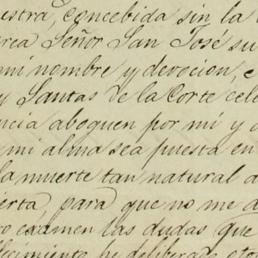 estra, concebida sin la
rea Señor San José su
mi nombre y devocion, e
y Santas de la Corte cele
ncia aboquen por mi y
mi alma sea puesta en
la muerte tan natural
ierta, para que no me
to examen las dudas que
he deliberado oto